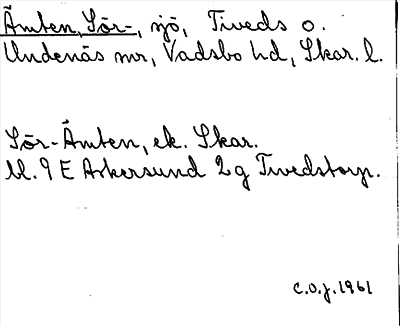 Ämten, Sör-, sjö, Tiveds o.
Undenäs snr, Vadsbo hd, Skar. l.
Sör-Ämten, ek. Skar.
Bl. 9 E Askersund 2 g Tivedstorp.
C.O.J. 1961